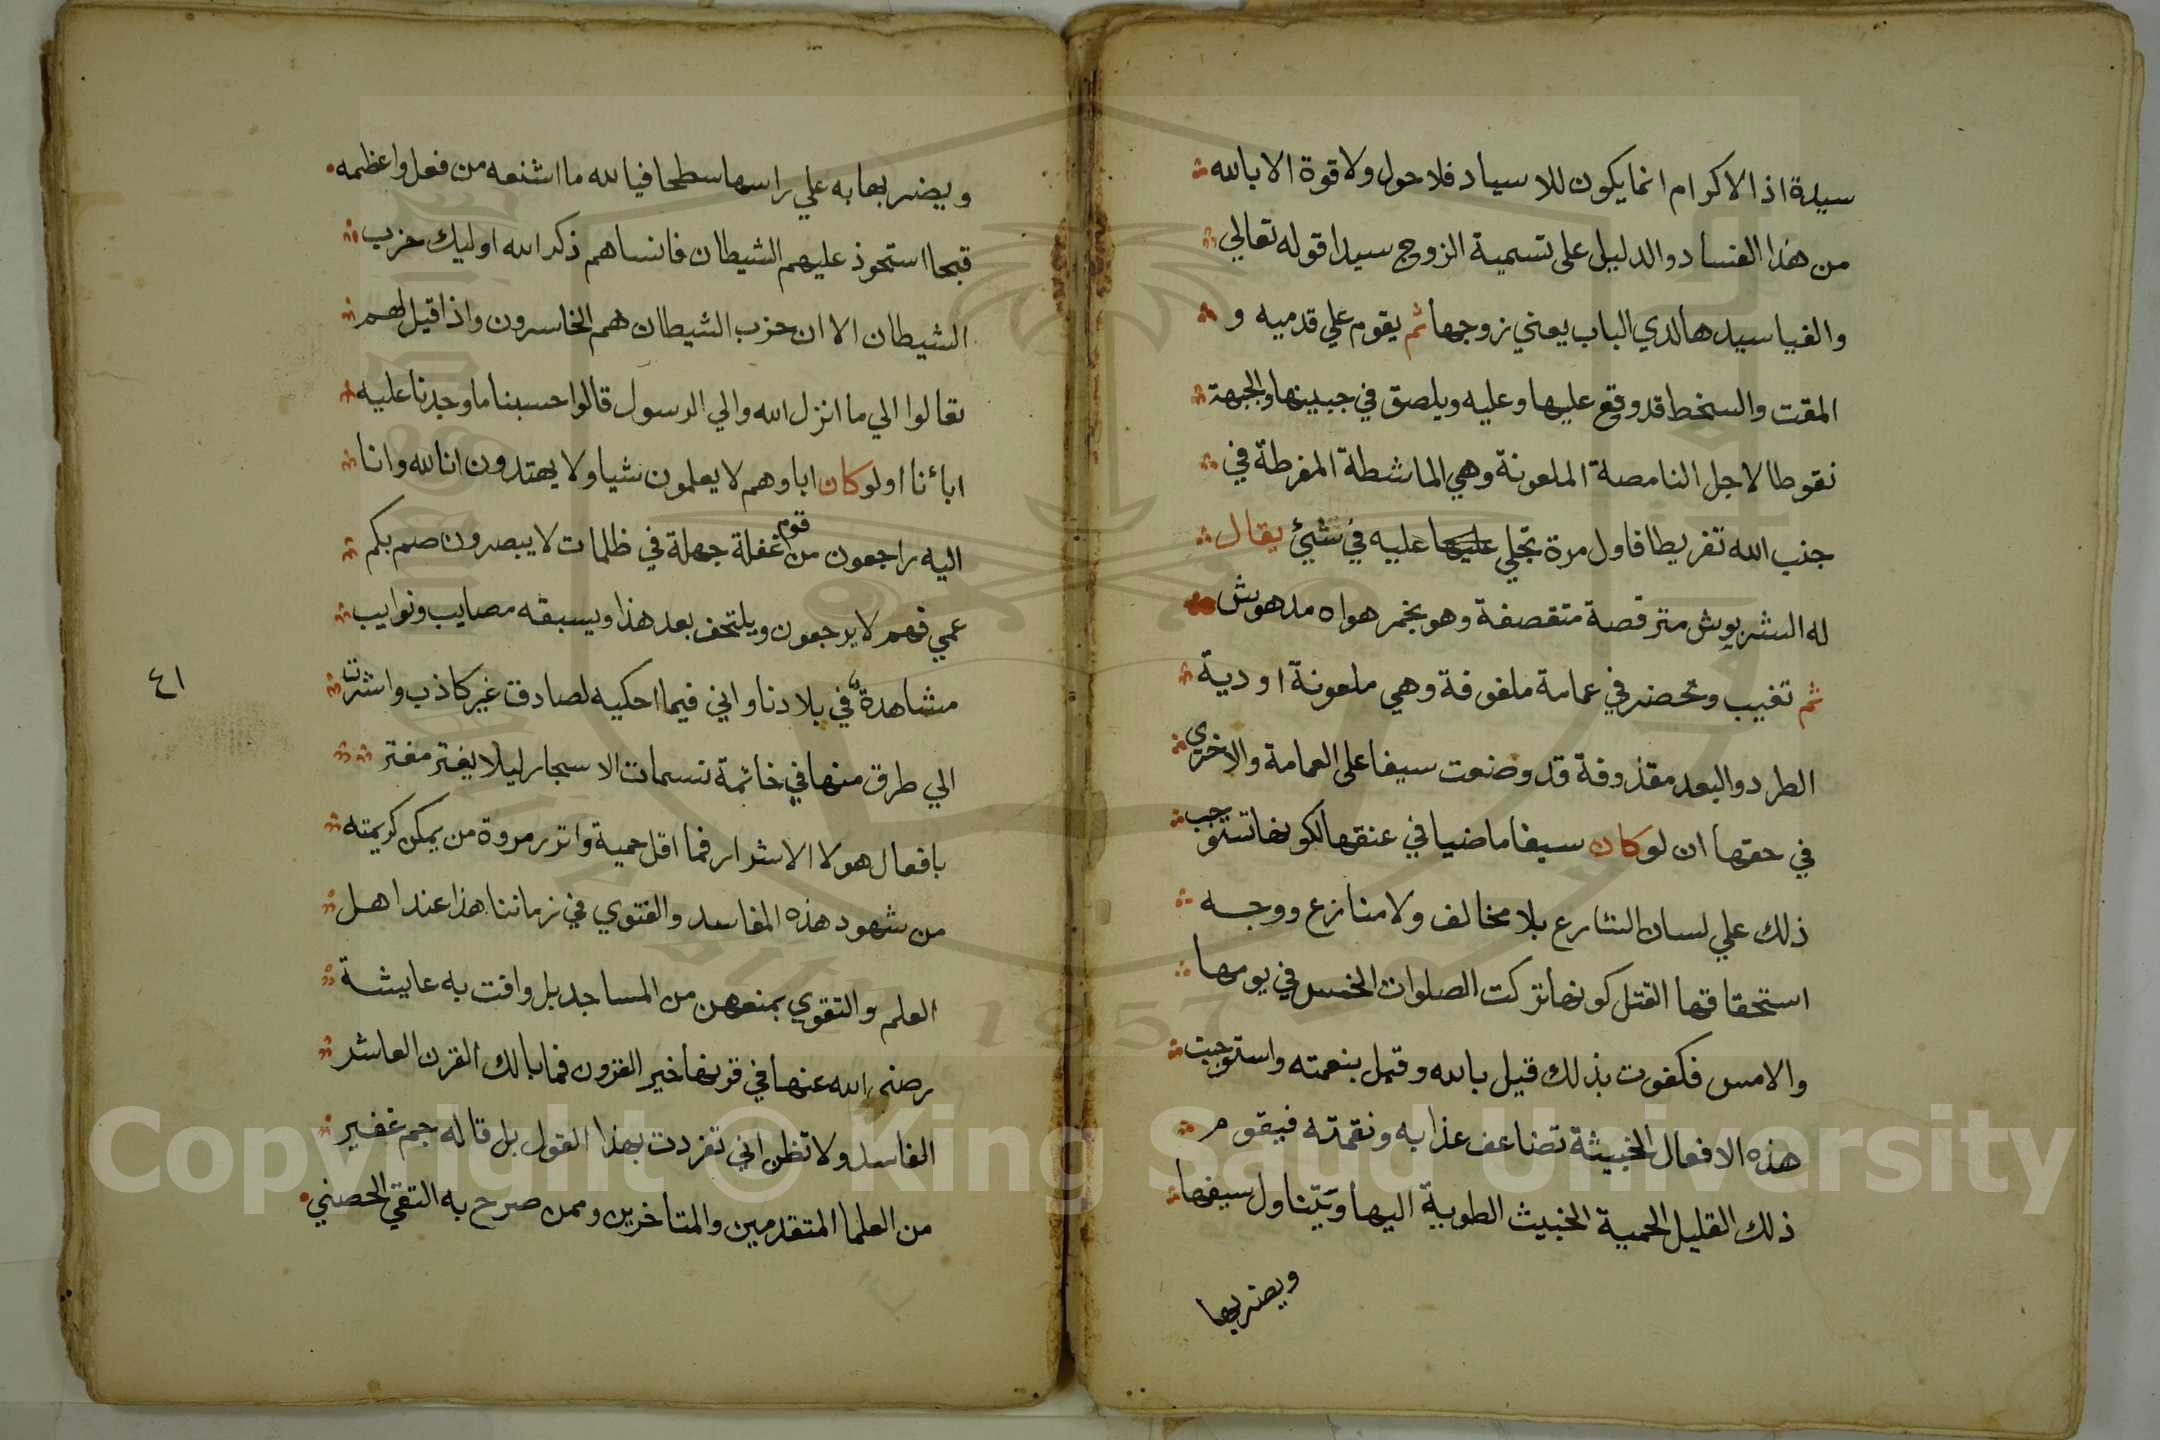 سيدة اذ الاكرام انما يكون للاسياد فلا حول ولا قوة الا بالله
من هذا الفساد والدليل على تسمية الزوج سيدا قوله تعالي
والفيا سيدها لدي الباب يعني زوجها ثم يقوم علي قدميه و
المقت والسخط قد وقع عليها وعليه ويلصق في جبينها والجبهة
نقوطا لاجل النامصة الملعونة وهي الماشطة المفرطة في
جنب الله تفريطا فاول مرة تجلي عليها عليه في شيئ يقال
له الشربوش مترقصة متقصفة وهو بخمر هواه مدهوش
ثم تغيب وتحضر في عمامة ملفوفة وهي ملعونة اودية
الطرد والبعد مقذوفة قد وضعت سيفا على العمامة والاخرى
في حقها ان لو كان سيفا ماضيا في عنقها لكونها تستوجب
ذلك علي لسان الشارع بلا مخالف ولا منازع ووجه
استحقاقها القتل كونها تركت الصلوات الخمس في يومها
والامس فكفرت بذلك قيل بالله وقيل بنعمته واستوجبت
هذه الافعال الخبيثة تضاعف عذابه ونقمته فيقوم
ذلك القليل الحمية الخبيث الطوية اليها ويتناول سيفها
ويضربها
ويضربها به علي راسها سطحا فيا لله ما اشنعه من فعل واعظمه
قبحا استحوذ عليهم الشيطان فانساهم ذكر الله اوليك حزب
الشيطان الا ان حزب الشيطان هم الخاسرون واذا قيل لهم
تعالوا الي ما انزل الله والي الرسول قالوا حسبنا ما وجدنا عليه
اباءنا اولو كان اباوهم لا يعلمون شيا ولا يهتدون انا لله وانا
اليه راجعون من قوم غفلة جهلة في ظلمات لا يبصرون صم بكم
عمي فهم لا يرجعون ويلتحف بعد هذا ويسبقه مصايب ونوايب
مشاهدة في بلادنا واني فيما احكيه لصادق غير كاذب واشرت
الي طرق منها في خاتمة نسمات الاسحار ليلا يغتر مغتر
بافعال هولا الاشرار فما اقل حمية وانزر مروة من يمكن كريمته
من شهود هذه المفاسد والفتوي في زماننا هذا عند اهل
العلم والتقوي بمنعهن من المساجد بل وافت به عايشة
رضي الله عنها في قرنها خير القرون فما بالك القرن العاشر
الفاسد ولا تظن اني تفردت بهذا القول بل قاله جم غفير
من العلما المتقدمين والمتاخرين وممن صرح به التقي الحصني
٤١
Copyright © King Saud University
1957